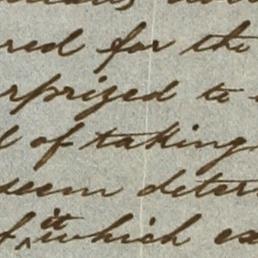 red for the
rprized to
of taking
seem deter
f it which ex